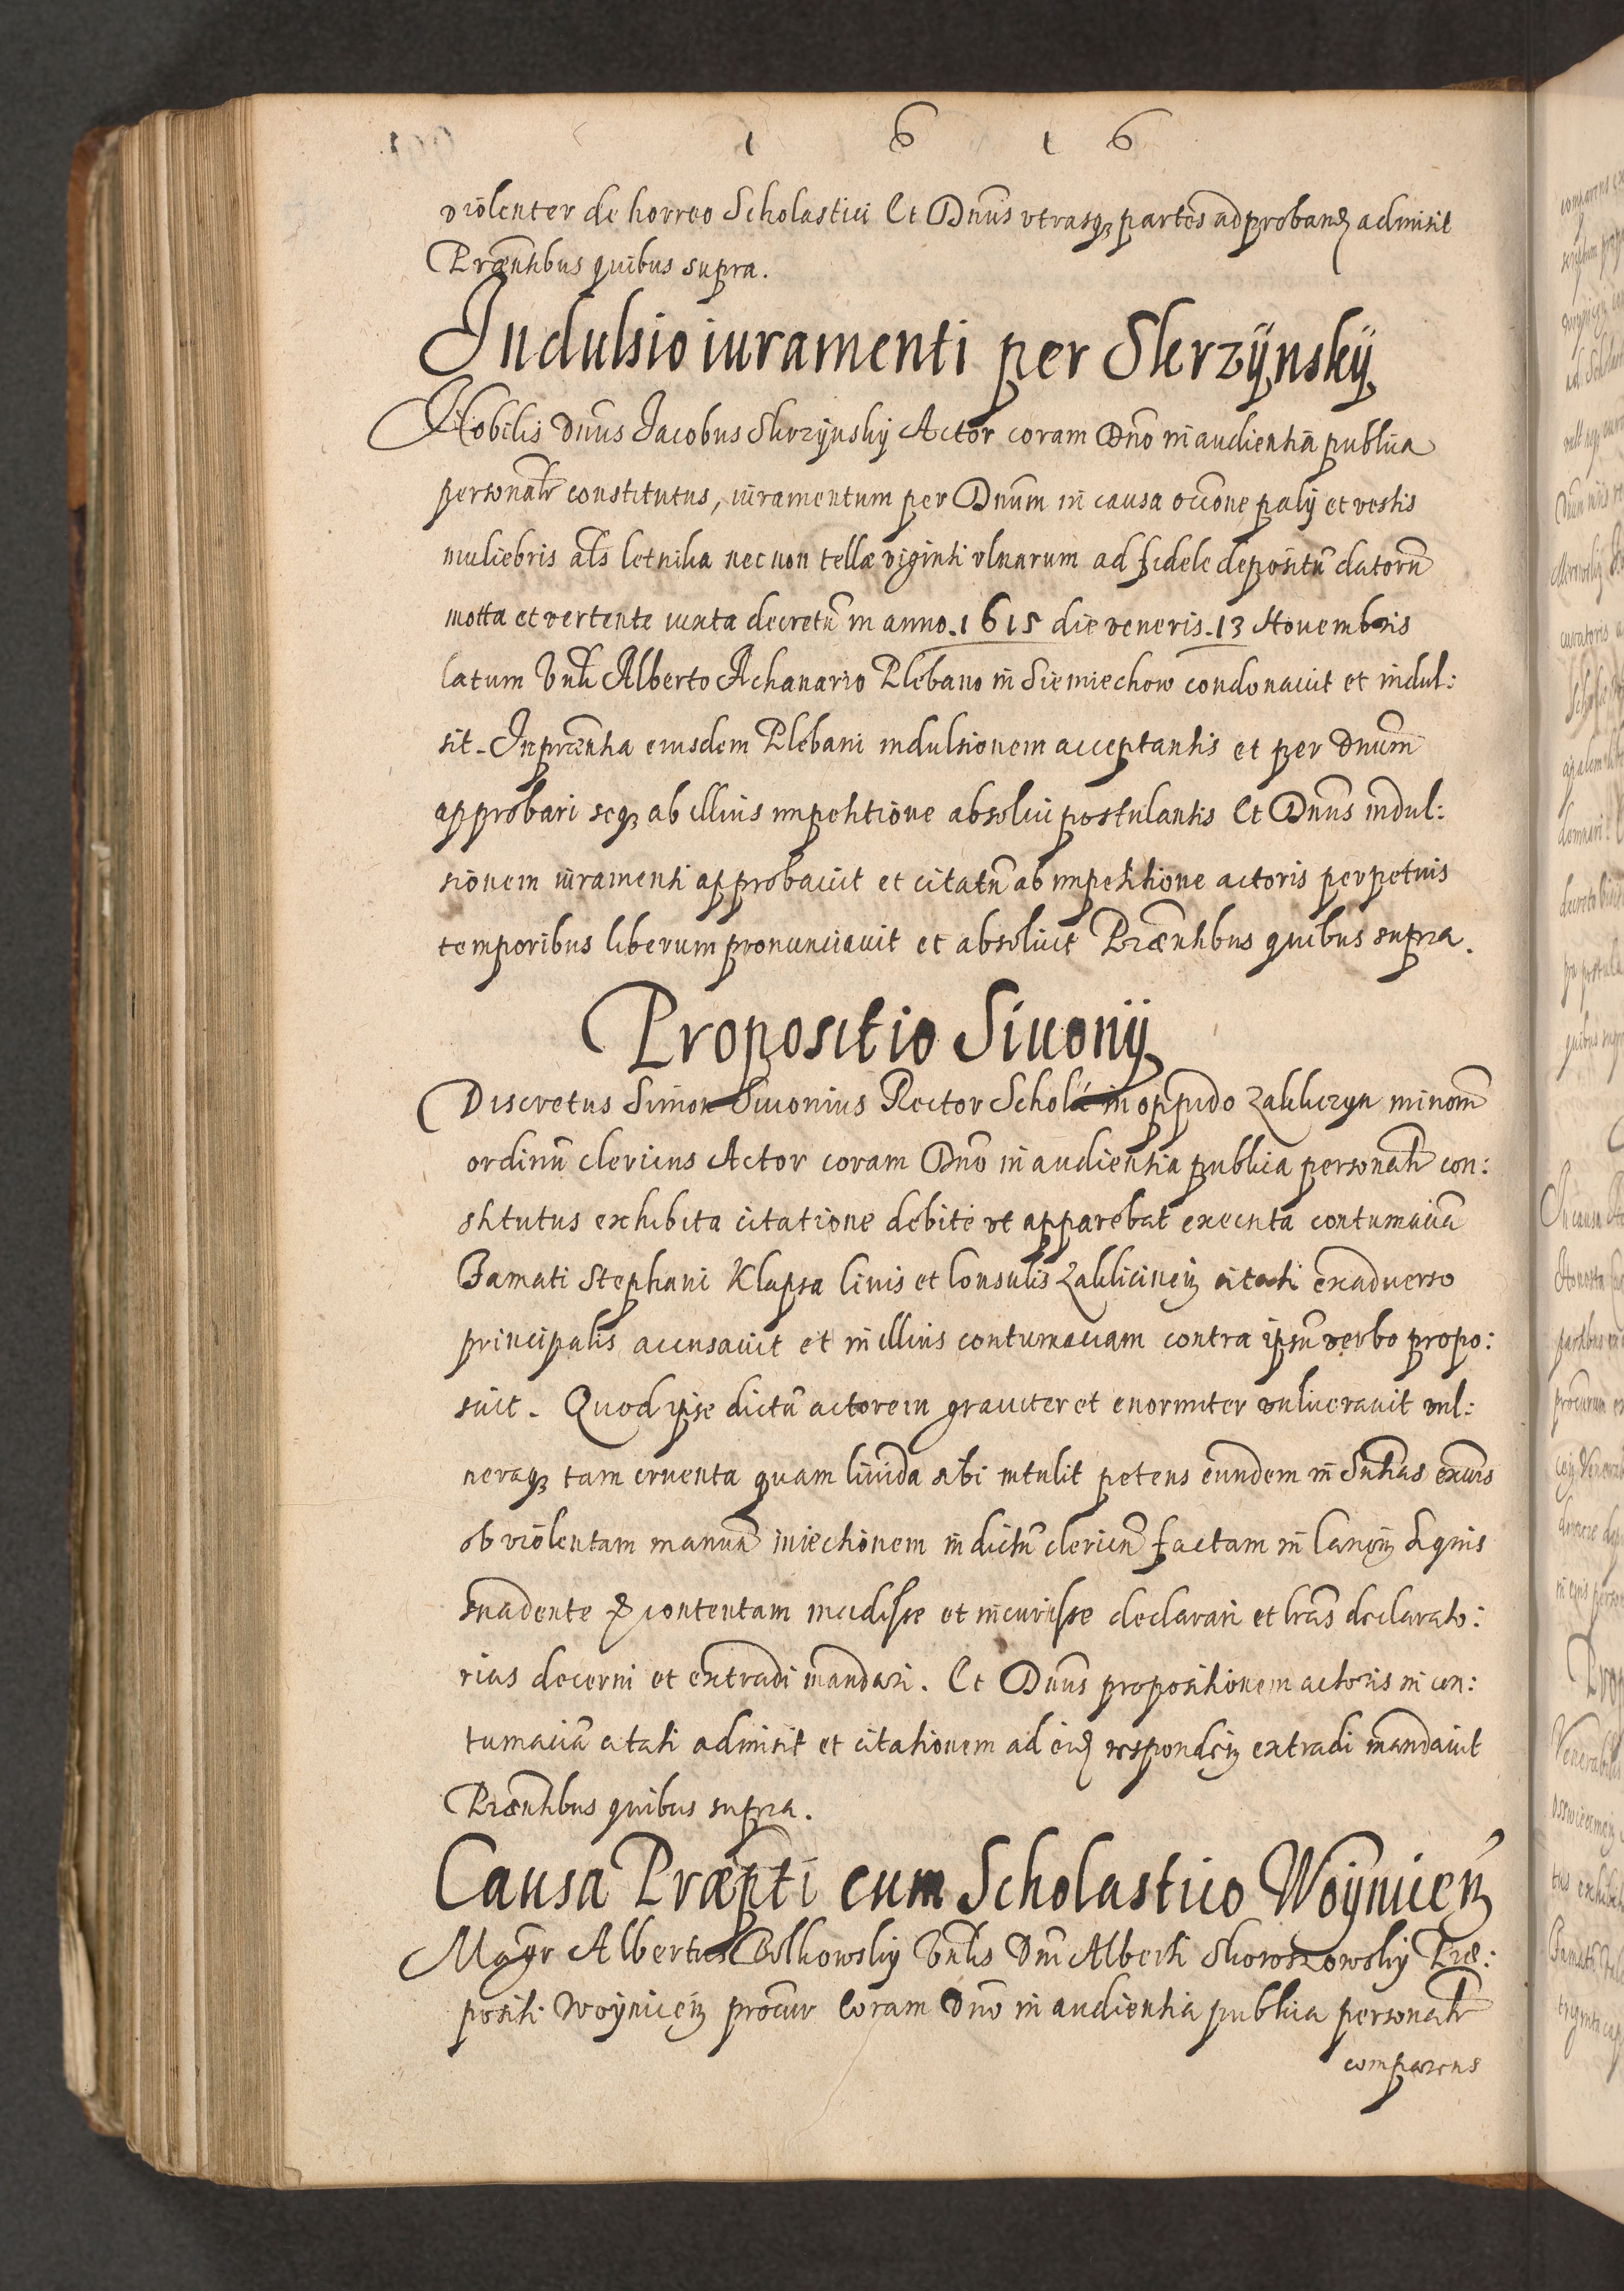 1 6 1 6
violenter de horreo Scholastici Et Dnūs vtrasqꝫ partes ad proband admisit
Præntibus quibus supra.
Indulsio iuramenti per Skrzÿnskÿ
Nobilis Dnūs Jacobus Skrzÿnskÿ Actor coram Dnō in audientia publica
personalr constitutus, iuramentum per Dnūm in causa occone palij et vestis
muliebris als letnika nec non tellæ viginti vlnarum ad fidele depositū datorū
motta et vertente iuxta decretū in anno. 1615 die veneris. 13 Nouembris
latum Vnli Alberto Achanario Plebano in Siemiechow condonauit et indul:
sit. In præntia eiusdem Plebani indulsionem acceptantis et per Dnūm
approbari seqꝫ ab illius impetitione absolui postulantis Et Dnūs indul:
sionem iuramenti approbauit et citatū ab impetitione actoris perpetuis
temporibus liberum pronunciauit et absoluit Præntibus quibus supra.
Propositio Siuonÿ
Discretus Simon Siuonius Rector Scholæ in oppido Zakliczyn minom
ordinū clericus Actor coram Dnō in audientia publica personalr con:
stitutus exhibita citatione debite vt apparebat executa contumaciā
Famati Stephani Klapsa Ciuis et Consulis Zaklicineñ citati exaduerso
principalis accusauit et in illius contumaciam contra ipsū verbo propo:
suit. Quod ipse dictū actorem grauiter et enormiter vulnerauit vul:
neraqꝫ tam cruenta quam liuida sibi intulit petens eundem in Sntias excōis
ob violentam manuū iniectionem in dictū clericū factam in Canoñ siquis
suadente & contentam incidisse et incurrisse declarari et lrās declarato:
rias decerni et extradi mandari. Et Dnūs propositionem actoris in con:
tumaciā citati admisit et citationem ad eid respondeñ extradi mandauit
Præntibus quibus supra.
Causa Præpti cum Scholastico Woÿniceñ
Magr Albertus Bolkowskÿ Vnlis Dni Alberti Skoroszowskÿ Præ:
positi Woÿniceñ procur Coram Dnō in audientia publica personalr
comparens